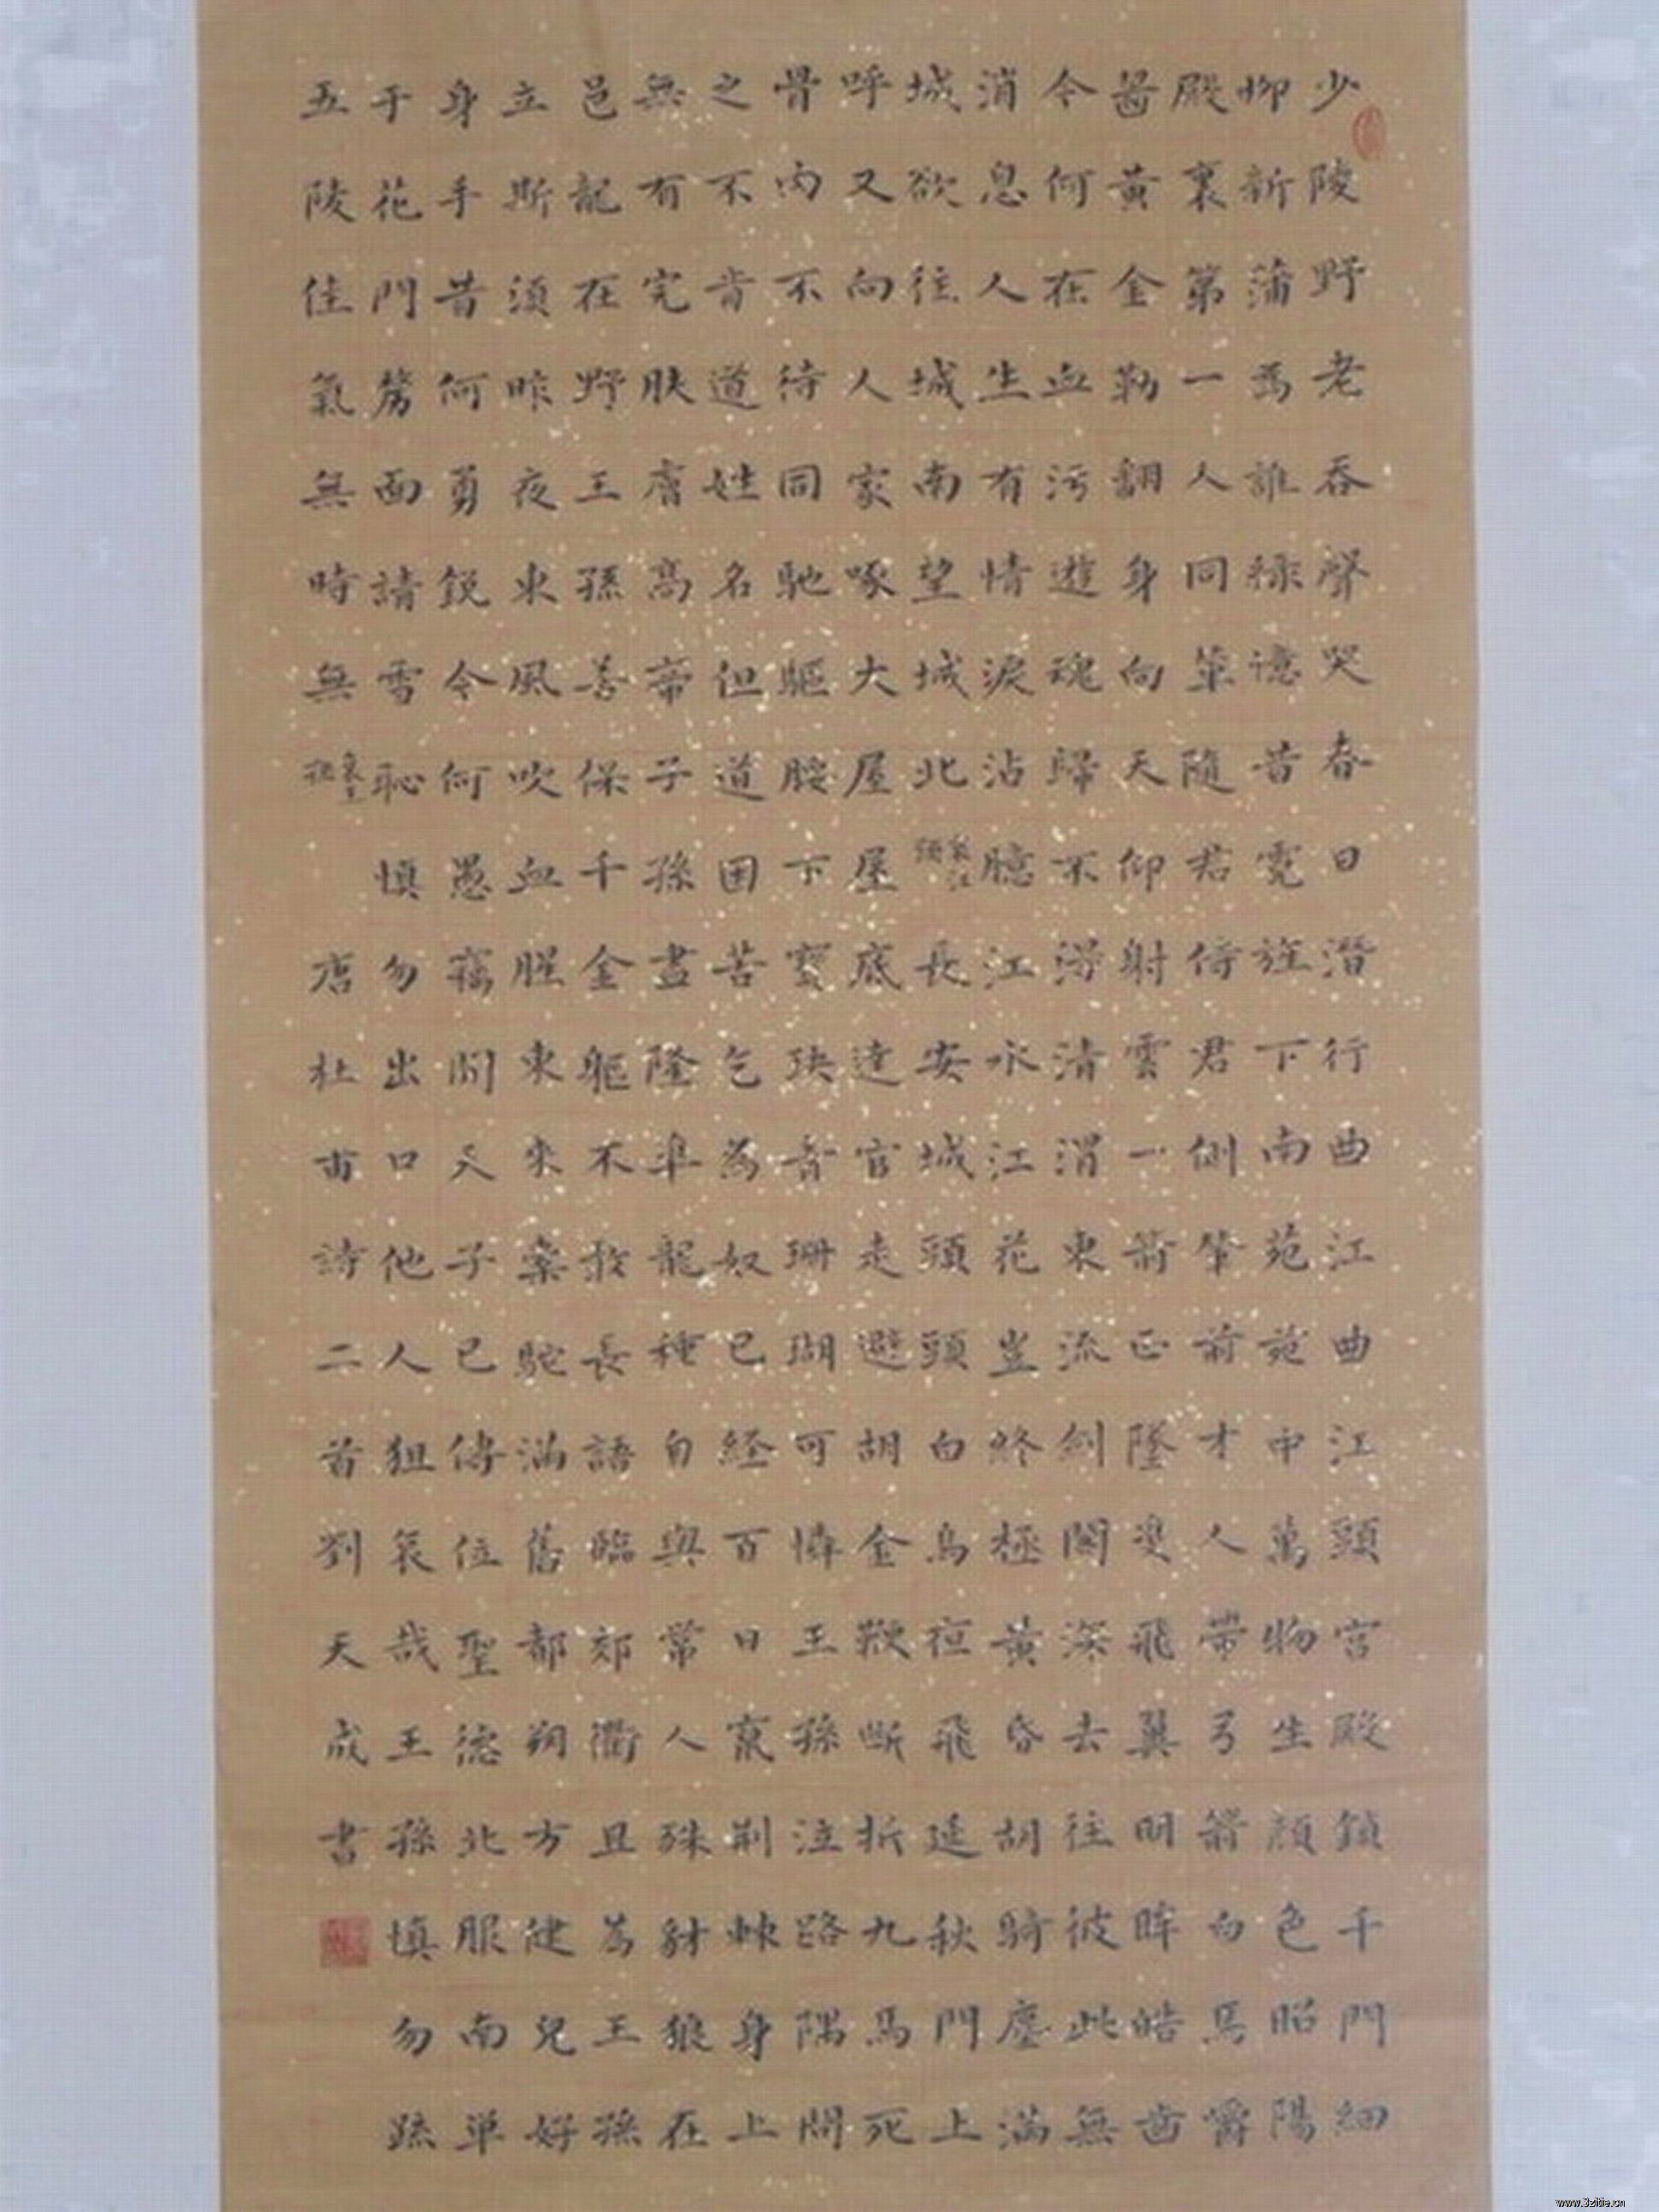 少陵野老吞聲哭春日潛行曲江曲江頭宮殿鎖千門細
柳新蒲為誰綠憶昔霓旌下南苑苑中萬物生顏色昭陽
殿裏第一人同輦隨君侍君側輦前才人帶弓箭白馬嚼
齧黃金勒翻身向天仰射雲一箭正墜雙飛翼明眸皓齒
今何在血污遊魂歸不得清渭東流劍閣深去往彼此無
消息人生有情淚沾臆江水江花豈終極黃昏胡騎塵滿
城欲往城南望城北 哀江頭 長安城頭頭白烏夜飛延秋門上
呼又向人家啄大屋屋底達官走避胡金鞭斷折九馬死
骨肉不待同馳驅腰下寶玦青珊瑚可憐王孫泣路隅問
之不肯道姓名但道困苦乞為奴已經百日竄荊棘身上
無有完肌膚高帝子孫盡隆準龍種自與常人殊豺狼在
邑龍在野王孫善保千金軀不敢長語臨郊衢且為王孫
立斯須昨夜東風吹血腥東來橐駝滿舊都朔方健兒好
身手昔何勇銳今何愚竊聞天子已傳位聖德北服南單
于花門剺面請雪恥慎勿出口他人狙哀哉王孫慎勿疏
五陵佳氣無時無 哀王孫 唐杜甫詩二首劉天成書
www.3zitie.cn